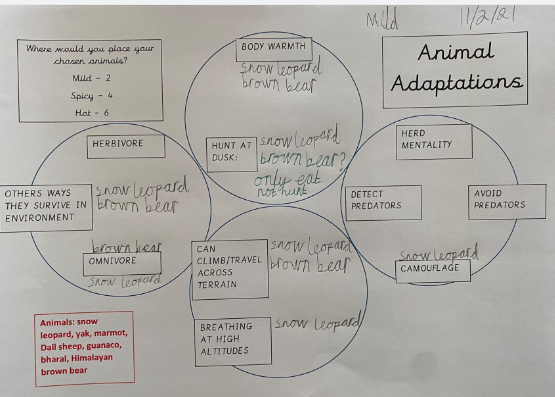 Mild
11/2/21
Where would you place your
chosen animals?
Mild - 2
Spicy - 4
Hot - 6
Animal
Adaptations
BODY WARMTH
snow leopard
brown bear
HUNT AT
DUSK:
snow leopard
brown bear?
only eat
not hunt
HERBIVORE
OTHERS WAYS
THEY SURVIVE IN
ENVIRONMENT
snow leopard
brown bear
brown bear
OMNIVORE
snow leopard
HERD
MENTALITY
DETECT
PREDATORS
AVOID
PREDATORS
snow leopard
CAMOUFLAGE
CAN
CLIMB/TRAVEL
ACROSS
TERRAIN
snow leopard
brown bear
BREATHING
AT HIGH
ALTITUDES
snow leopard
Animals: snow
leopard, yak, marmot,
Dall sheep, guanaco,
bharal, Himalayan
brown bear